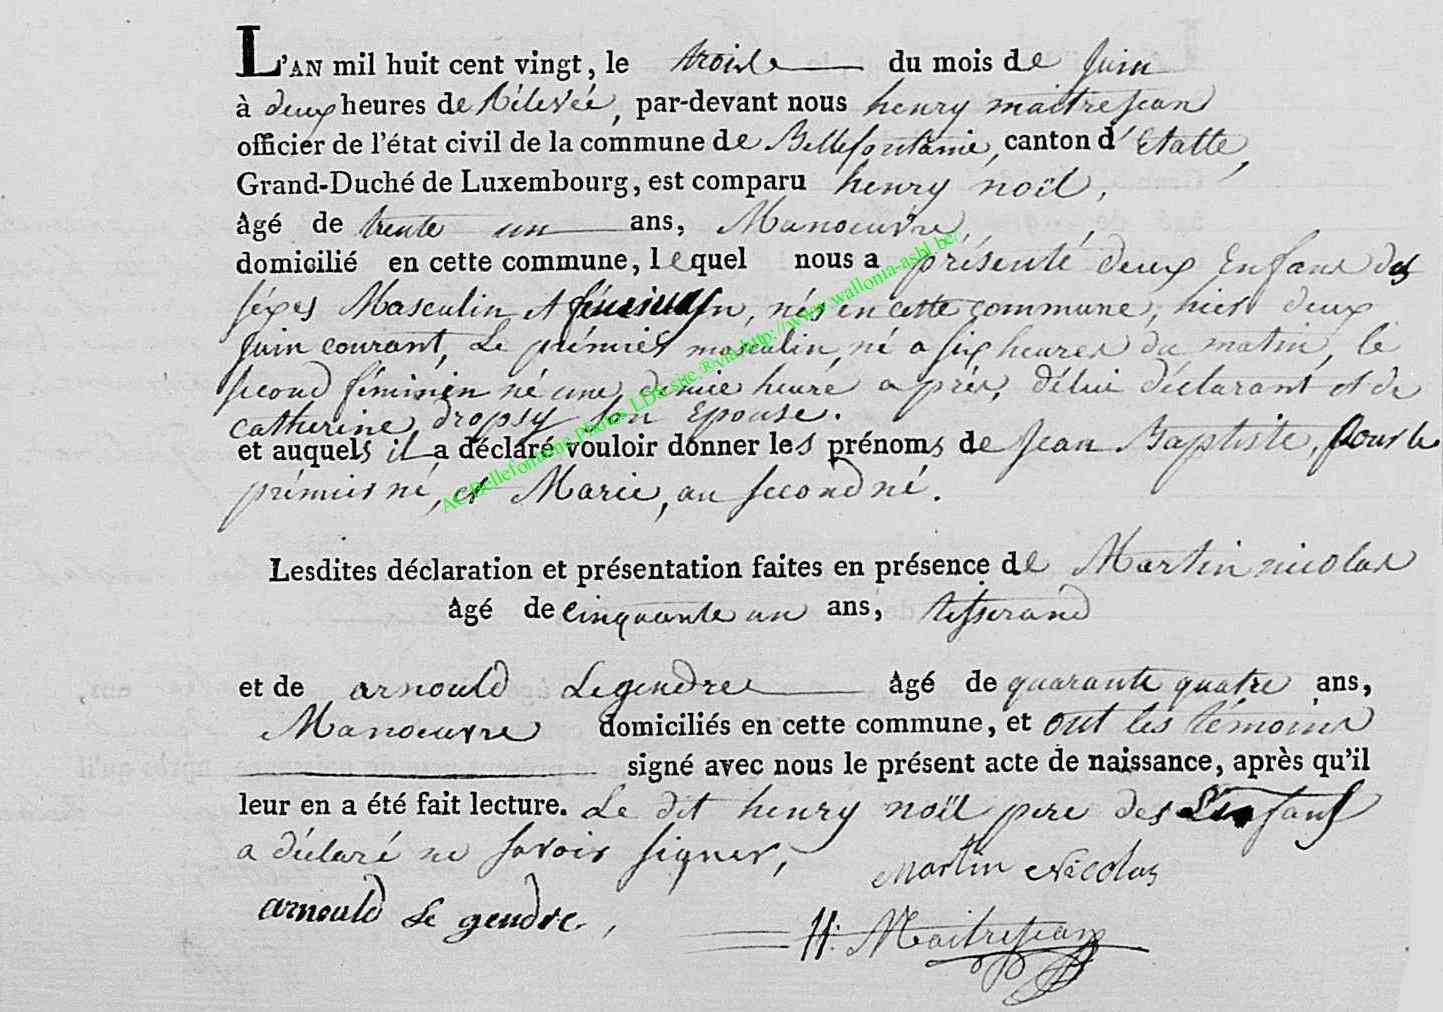 L'AN mil huit cent vingt, le troisle du mois de Juin
à deux heures de Rélevée, par-devant nous henry maitrejean
officier de l'état civil de la commune de Bellefontaine, canton d'Etalle,
Grand-Duché de Luxembourg, est comparu henry noël,
âgé de trente un ans, Manoeuvre,
domicilié en cette commune, lequel nous a présenté deux Enfans des
séxes Masculin et féminin, nés en cette commune, hier deux
Juin courant, Le prémier masculin, né a six heures du matin, le
second féminin né une demie heure après, délui déclarant et de
catherine dropsy son Epouse.
et auquels il a déclaré vouloir donner les prénoms de Jean Baptiste, pour le
prémier né, et Marie, au second né.
Lesdites déclaration et présentation faites en présence de Martin nicolas
âgé de cinquante un ans, tisserand
et de arnould Legendre âgé de quarante quatre ans,
Manoeuvre domiciliés en cette commune, et ont les témoins
signé avec nous le présent acte de naissance, après qu'il
leur en a été fait lecture. Le dit henry noël pere des Enfans
a déclaré ne savoir signer,
Martin Nicolas
arnould Le gendre,
H: Maitrejean
AC Bellefontaine Photos LDS site ®via http://www.wallonia-asbl.be/